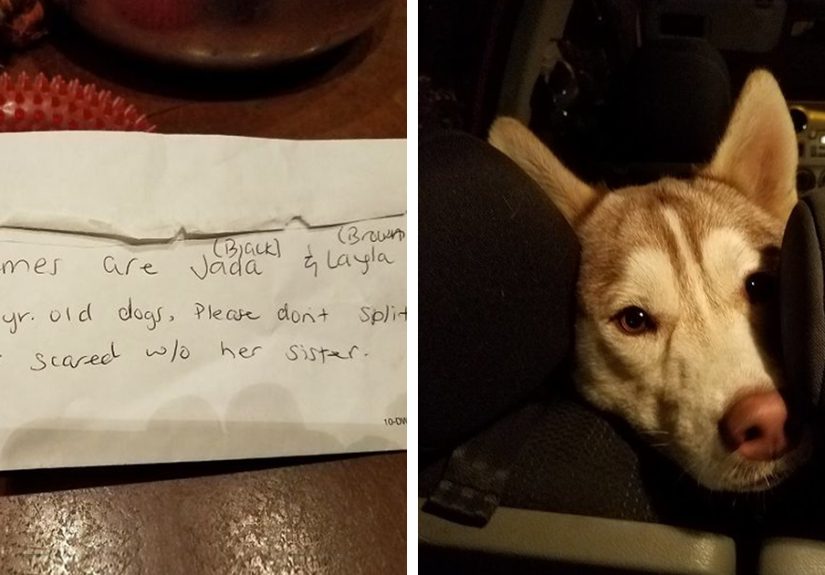 (Black) (Brown
mes are Jada & Layla
yr. old dogs, Please don't split
scared w/o her sister.
10-DW